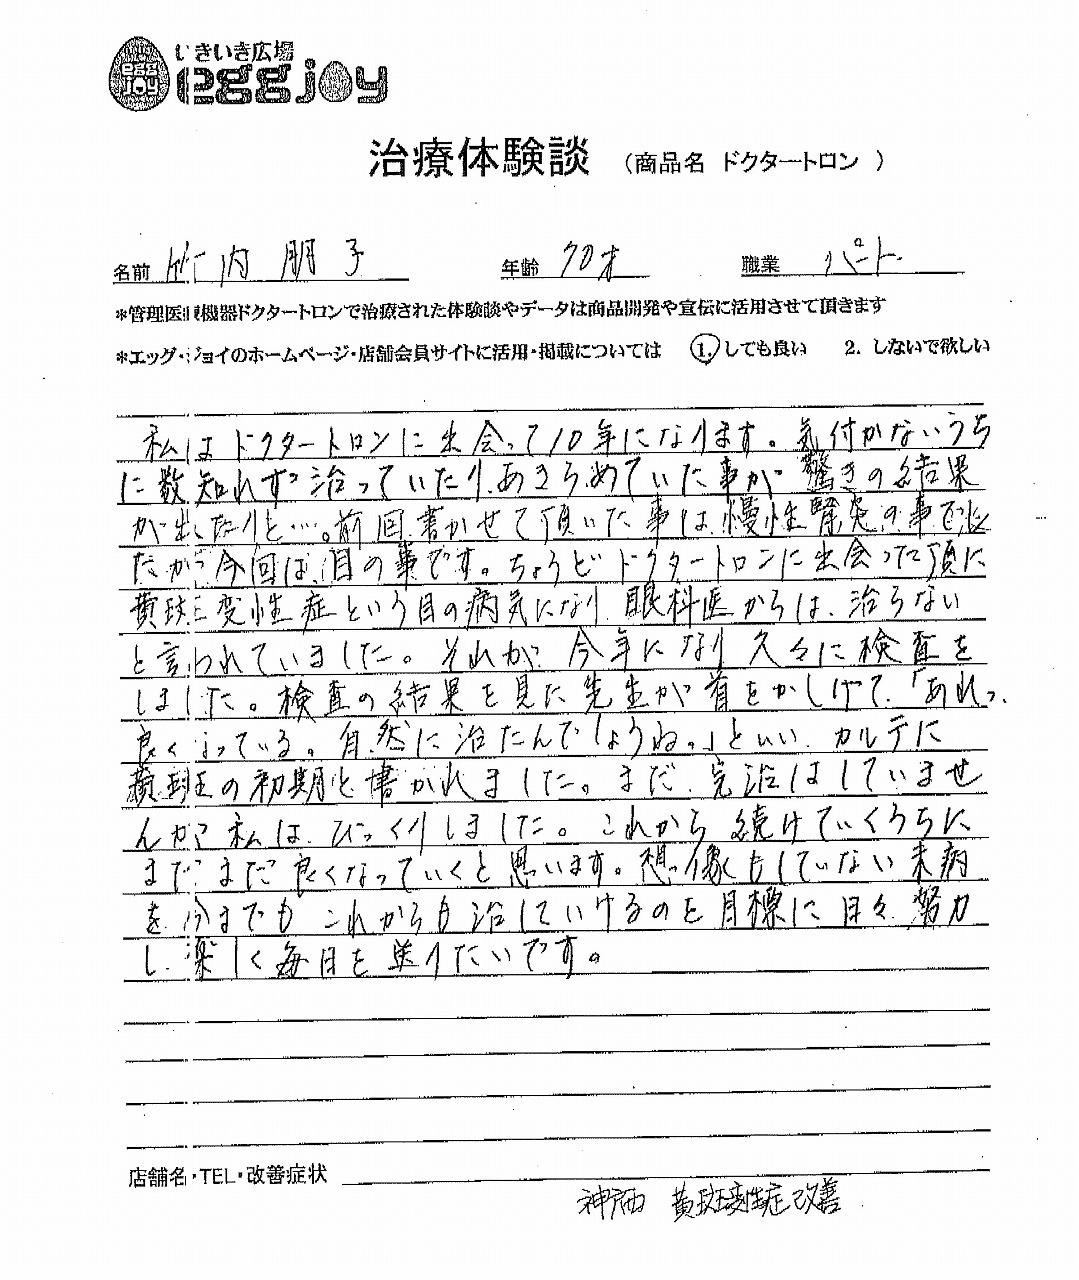 いきいき広場
egg joy
eggjoy
治療体験談 (商品名 ドクタートロン )
名前 竹内 朋子 年齢 70才 職業 パート
*管理医療機器ドクタートロンで治療された体験談やデータは商品開発や宣伝に活用させて頂きます
*エッグ・ジョイのホームページ・店舗会員サイトに活用・掲載については 1. しても良い 2. しないで欲しい
私はドクタートロンに出会って10年になります。気付かないうち
に数知れず治っていたり、あきらめていた事が驚きの結果
が出たりと…。前回書かせて頂いた事は慢性腎炎の事でし
たが今回は、目の事です。ちょうどドクタートロンに出会った頃に
黄斑変性症という目の病気になり眼科医からは、治らない
と言われていました。それが今年になり久々に検査を
しました。検査の結果を見た先生が首をかしげて、「あれっ、
良くなっている。自然に治たんでしょうね。」といい、カルテに
黄斑の初期と書かれました。まだ、完治はしていませ
んが私は、びっくりしました。これから続けていくうちに
まだまだ良くなっていくと思います。想像もしていない未病
を今までもこれからも治していけるのを目標に日々努力
し、楽しく毎日を送りたいです。
店舗名・TEL・改善症状
黄斑変性症改善